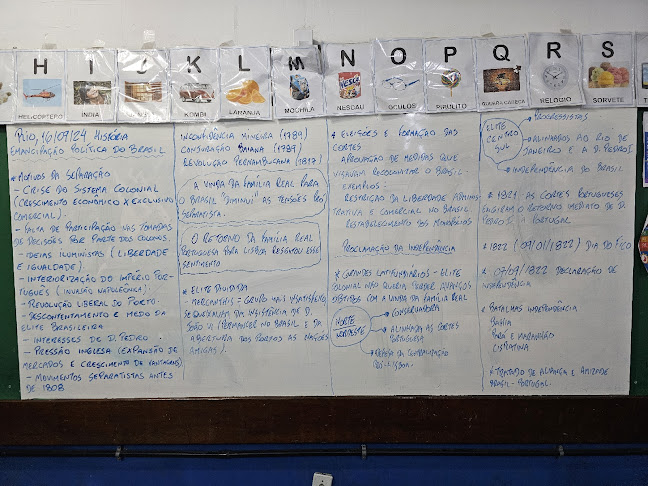 H I J K L M N O P Q R S
HELICÓPTERO
ÍNDIA
KOMBI
LARANJA
MOCHILA
NESCAU
ÓCULOS
PIRULITO
RELÓGIO
SORVETE
RIO, 16/09/24 HISTÓRIA
EMANCIPAÇÃO POLÍTICA DO BRASIL
* MOTIVOS DA SEPARAÇÃO
- CRISE DO SISTEMA COLONIAL
(CRESCIMENTO ECONÔMICO X EXCLUSIVO
COMERCIAL).
- FALTA DE PARTICIPAÇÃO NAS TOMADAS
DE DECISÕES POR PARTE DOS COLONOS.
- IDEIAS ILUMINISTAS (LIBERDADE
E IGUALDADE)
- INTERIORIZAÇÃO DO IMPÉRIO POR-
TUGUÊS (INVASÃO NAPOLEÔNICA).
- REVOLUÇÃO LIBERAL DO PORTO.
- DESCONTENTAMENTO E MEDO DA
ELITE BRASILEIRA
- INTERESSES DE D. PEDRO.
- PRESSÃO INGLESA (EXPANSÃO DE
MERCADOS E CRESCIMENTO DE VANTAGENS)
- MOVIMENTOS SEPARATISTAS ANTES
DE 1808
INCONFIDÊNCIA MINEIRA (1789)
CONJURAÇÃO BAIANA (1798)
REVOLUÇÃO PERNAMBUCANA (1817)
A VINDA DA FAMÍLIA REAL PARA
O BRASIL "DIMINUI" AS TENSÕES
SEPARATISTA.
O RETORNO DA FAMÍLIA REAL
PORTUGUESA PARA LISBOA ESSE
SENTIMENTO
* ELITE DIVIDIDA
- MERCANTIS = GRUPO MAIS INSATISFEITO
SE QUEIXAVA DA INSISTÊNCIA DE D.
JOÃO VI PERMANECER NO BRASIL E DA
ABERTURA DOS PORTOS AS NAÇÕES
AMIGAS).
* ELEIÇÕES E FORMAÇÃO DAS
CORTES
APROVAÇÃO DE MEDIDAS QUE
VISAVAM RECOLONIZAR O BRASIL -
EXEMPLOS:
RESTRIÇÃO DA LIBERDADE ADMINIS
TRATIVA E COMERCIAL NO BRASIL
RESTABELECIMENTO DOS MONOPÓLIOS
PROCLAMAÇÃO DA INDEPENDÊNCIA
* GRANDES LATIFUNDIÁRIOS - ELITE
COLONIAL NÃO QUERIA PERDER AVANÇOS
OBTIDOS COM A VINDA DA FAMÍLIA REAL
NORTE
NORDESTE
CONSERVADORA
ALINHADA AS CORTES
PORTUGUESA
DA CENTRALIZAÇÃO
LISBOA.
ELITE
CENTRO
SUL
PROGRESSISTAS
ALINHADOS AO RIO DE
JANEIRO E A D. PEDRO I
INDEPENDÊNCIA DO BRASIL
* 1821 - AS CORTES PORTUGUESAS
EXIGIRAM O RETORNO IMEDIATO DE D.
PEDRO I A PORTUGAL
* 1822 (09/01/1822) DIA DO FICO
* 07/09/1822 DECLARAÇÃO DE
INDEPENDÊNCIA
* BATALHAS INDEPENDÊNCIA
BAHIA
PARÁ E MARANHÃO
CISPLATINA
* TRATADO DE ALIANÇA E AMIZADE
BRASIL - PORTUGAL.